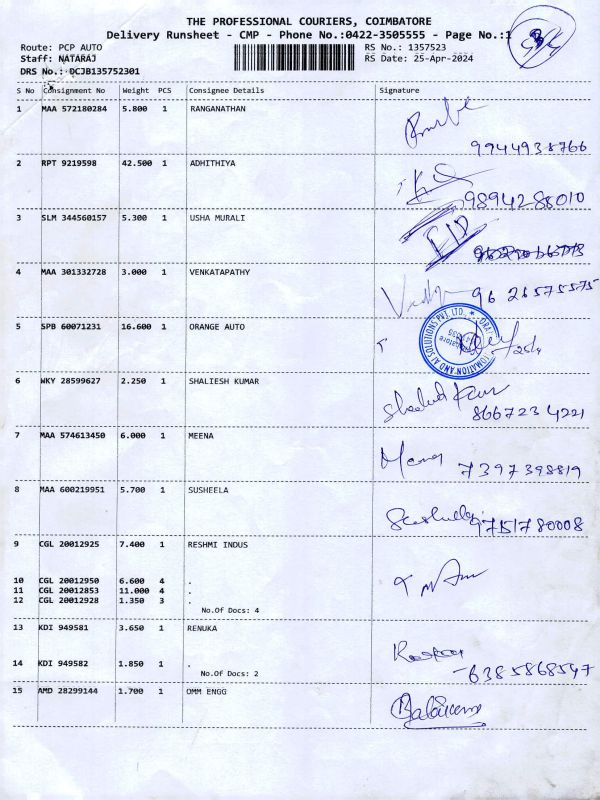 THE PROFESSIONAL COURIERS, COIMBATORE
Delivery Runsheet - CMP - Phone No.:0422-3505555 - Page No.:1
Route: PCP AUTO
RS No.: 1357523
Staff: NATARAJ
RS Date: 25-Apr-2024
DRS No.: DCJB135752301
S No Consignment No Weight PCS Consignee Details Signature
1 MAA 572180284 5.800 1 RANGANATHAN
9944938766
2 RPT 9219598 42.500 1 ADHITHIYA
9894288010
3 SLM 344560157 5.300 1 USHA MURALI
4 MAA 301332728 3.000 1 VENKATAPATHY
96 26575575
5 SPB 60071231 16.600 1 ORANGE AUTO
OMATION AND AI SOLUTIONS PVT. LTD. * ORA
6 WKY 28599627 2.250 1 SHALIESH KUMAR
8667234221
7 MAA 574613450 6.000 1 MEENA
7397398819
8 MAA 600219951 5.700 1 SUSHEELA
9751780008
9 CGL 20012925 7.400 1 RESHMI INDUS
10 CGL 20012950 6.600 4 .
11 CGL 20012853 11.000 4 .
12 CGL 20012928 1.350 3 .
No.Of Docs: 4
13 KDI 949581 3.650 1 RENUKA
14 KDI 949582 1.850 1 .
6385868547
No.Of Docs: 2
15 AMD 28299144 1.700 1 OMM ENGG